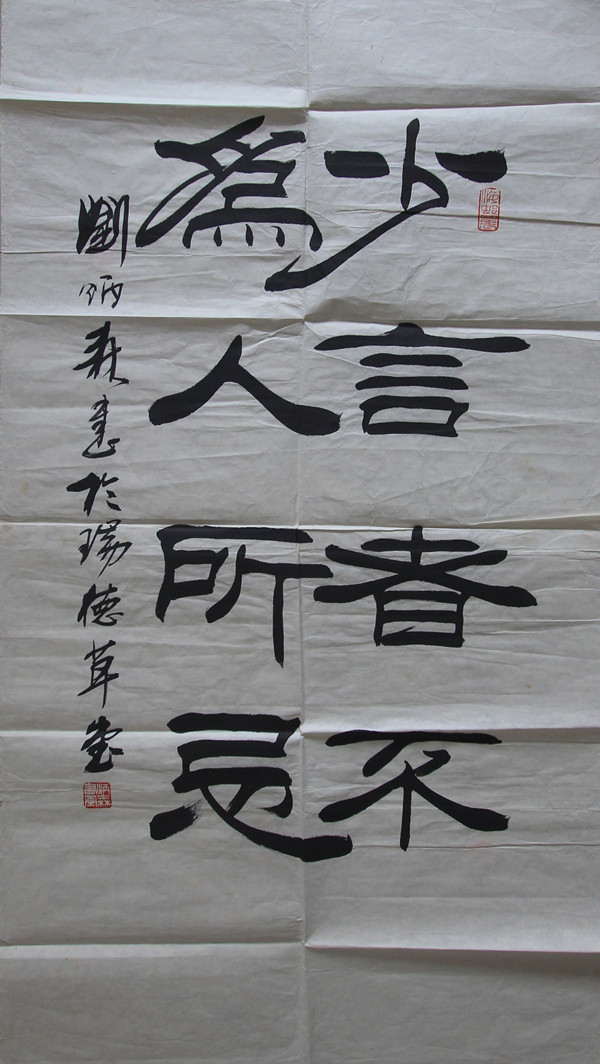 少言者不
為人所忌
劉炳森書於瑞德草堂